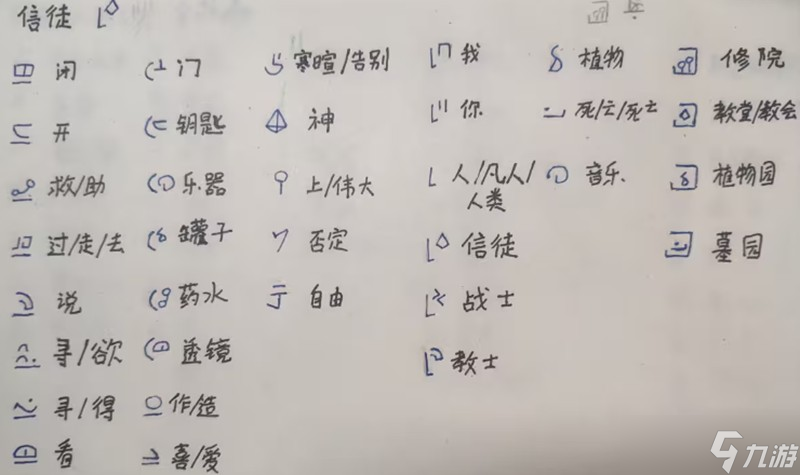 信徒
闭 门 寒暄/告别 我 植物 修院
开 钥匙 神 你 死/亡/死亡 教堂/教会
救/助 乐器 上/伟大 人/凡人/ 音乐 植物园
人类
过/走/去 罐子 否定 信徒 墓园
说 药水 自由 战士
寻/欲 透镜 教士
寻/得 作/造
看 喜/爱
九游